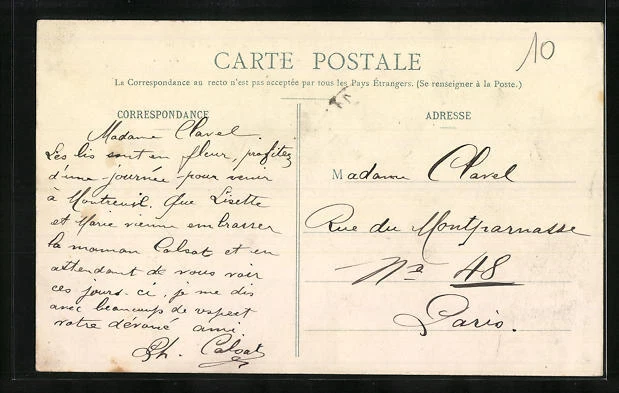 10
CARTE POSTALE
La Correspondance au recto n'est pas acceptée par tous les Pays Étrangers. (Se renseigner à la Poste.)
CORRESPONDANCE
Madame Clavel.
Les lis sont en fleur, profitez
d'une journée pour venir
à Montreuil. Que Lisette
et Marie vienne embrasser
la maman Calsat et en
attendant de vous voir
ces jours-ci, je me dis
avec beaucoup de respect
votre dévoué ami.
Ph. Calsat
ADRESSE
Madame Clavel
Rue du Montparnasse
No 48
Paris.